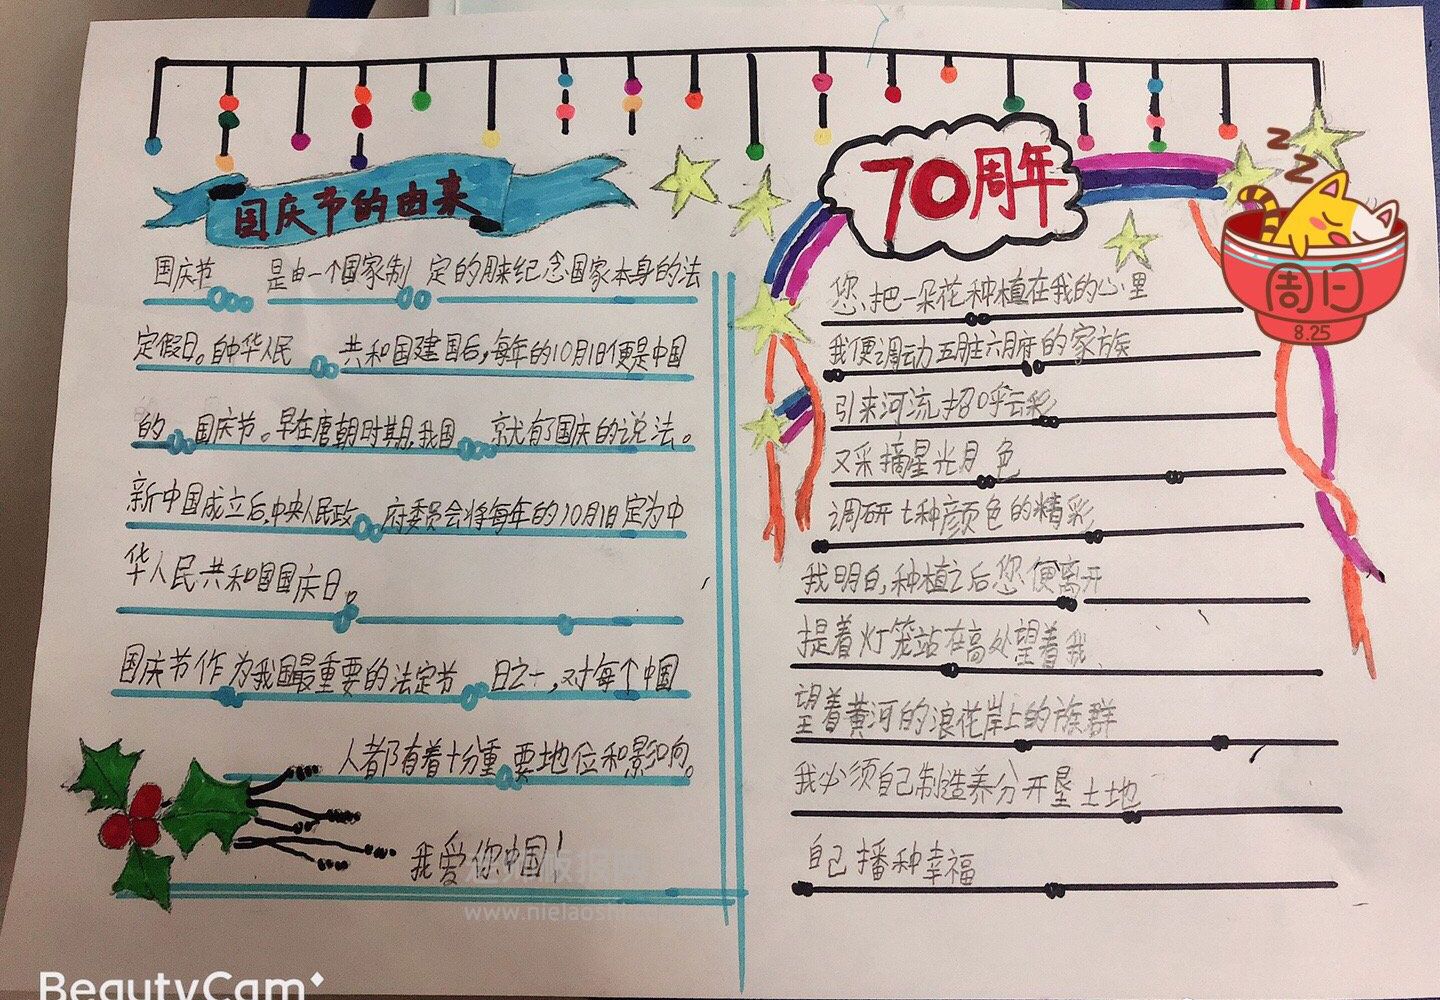 国庆节的由来
国庆节 是由一个国家制 定的用来纪念国家本身的法
定假日。自中华人民 共和国建国后,每年的10月1日便是中国
的 国庆节。早在唐朝时期,我国 就有了国庆的说法。
新中国成立后,中央人民政 府委员会将每年的10月1日定为中
华人民共和国国庆日。
国庆节作为我国最重要的法定节 日之一,对每个中国
人都有着十分重要地位和影响。
我爱你中国!
www.nielaoshi
BeautyCam
70周年
您,把一朵花种植在我的心里
我便调动五脏六腑的家族
引来河流,招呼云彩
又采摘星光月色
调研七种颜色的精彩
我明白,种植之后您便离开
提着灯笼站在高处望着我、
望着黄河的浪花岸上的族群
我必须自己制造养分开垦土地
自己播种幸福
周日
8.25